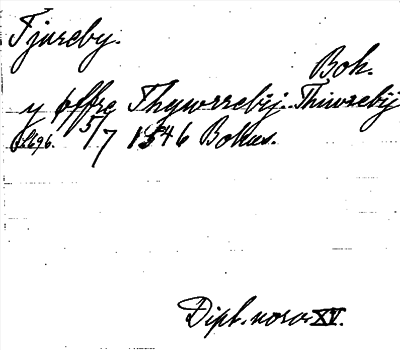 Tjureby.
Boh.
y øffre Thywrreby. Thiwreby
s. 696. 5/7 1546 Bohus.
Dipl. norv. XV.